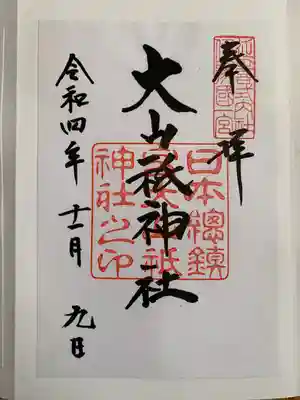 奉拝
大山祇神社
日本總鎮
神社之印
令和四年 十一月 九日